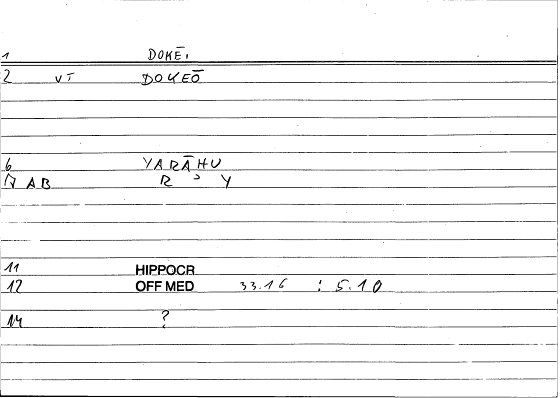 1 DOKĒ.
2 VT DOKEŌ
6 YARĀHU
AB R ʾ Y
11 HIPPOCR
12 OFF MED 33.16 : 5.10
14 ?